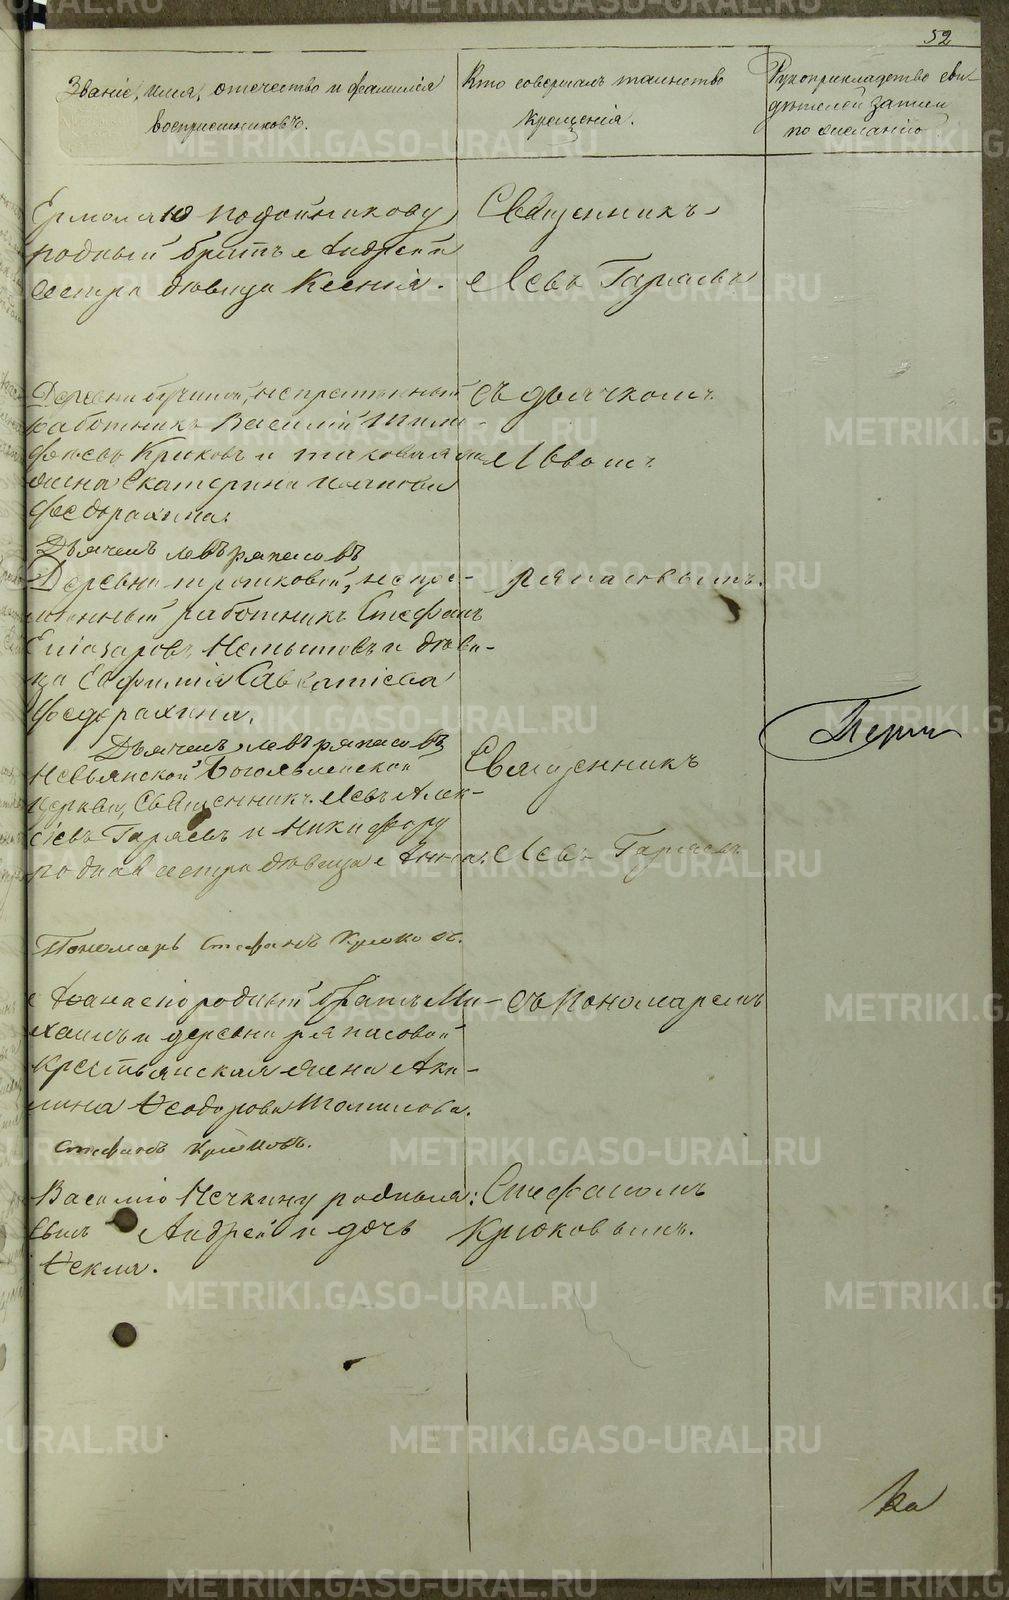 52
Званіе, имя, отечество и фамилія
воспріемниковъ.
Кто совершалъ таинство
крещенія.
Рукоприкладство сви-
дѣтелей записи
по желанію
Ермолаю Подойникову
родный братъ Андрей и
сестра дѣвица Ксенія.
Священникъ
Левъ Гаряевъ
Деревни непремѣнный
работникъ Василій
Крюковъ и
жена Екатерина
Федорахина.
Дьячекъ Левъ Ряпасовъ
съ дьячкомъ
Львомъ
Ряпасовымъ.
Деревни непре-
мѣнный работникъ Стефанъ
Елизаровъ и дѣви-
ца Евфимія Савватіева
Федорахина.
Дьячекъ Левъ Ряпасовъ
Невьянской Богоявленской
церкви, Священникъ Левъ Алек-
сіевъ Гаряевъ и Никифору
родная сестра дѣвица Анна.
Священникъ
Левъ Гаряевъ
Пономарь Стефанъ Крюковъ.
Аѳанасію родный братъ Ми-
хаилъ и деревни Ряпасовой
крестьянская жена Аку-
лина Ѳеодорова
Стефанъ Крюковъ.
съ пономаремъ
Василію Нечкину родныя:
сынъ Андрей и дочь
Ѳекла.
Стефаномъ
Крюковымъ.
METRIKI.GASO-URAL.RU